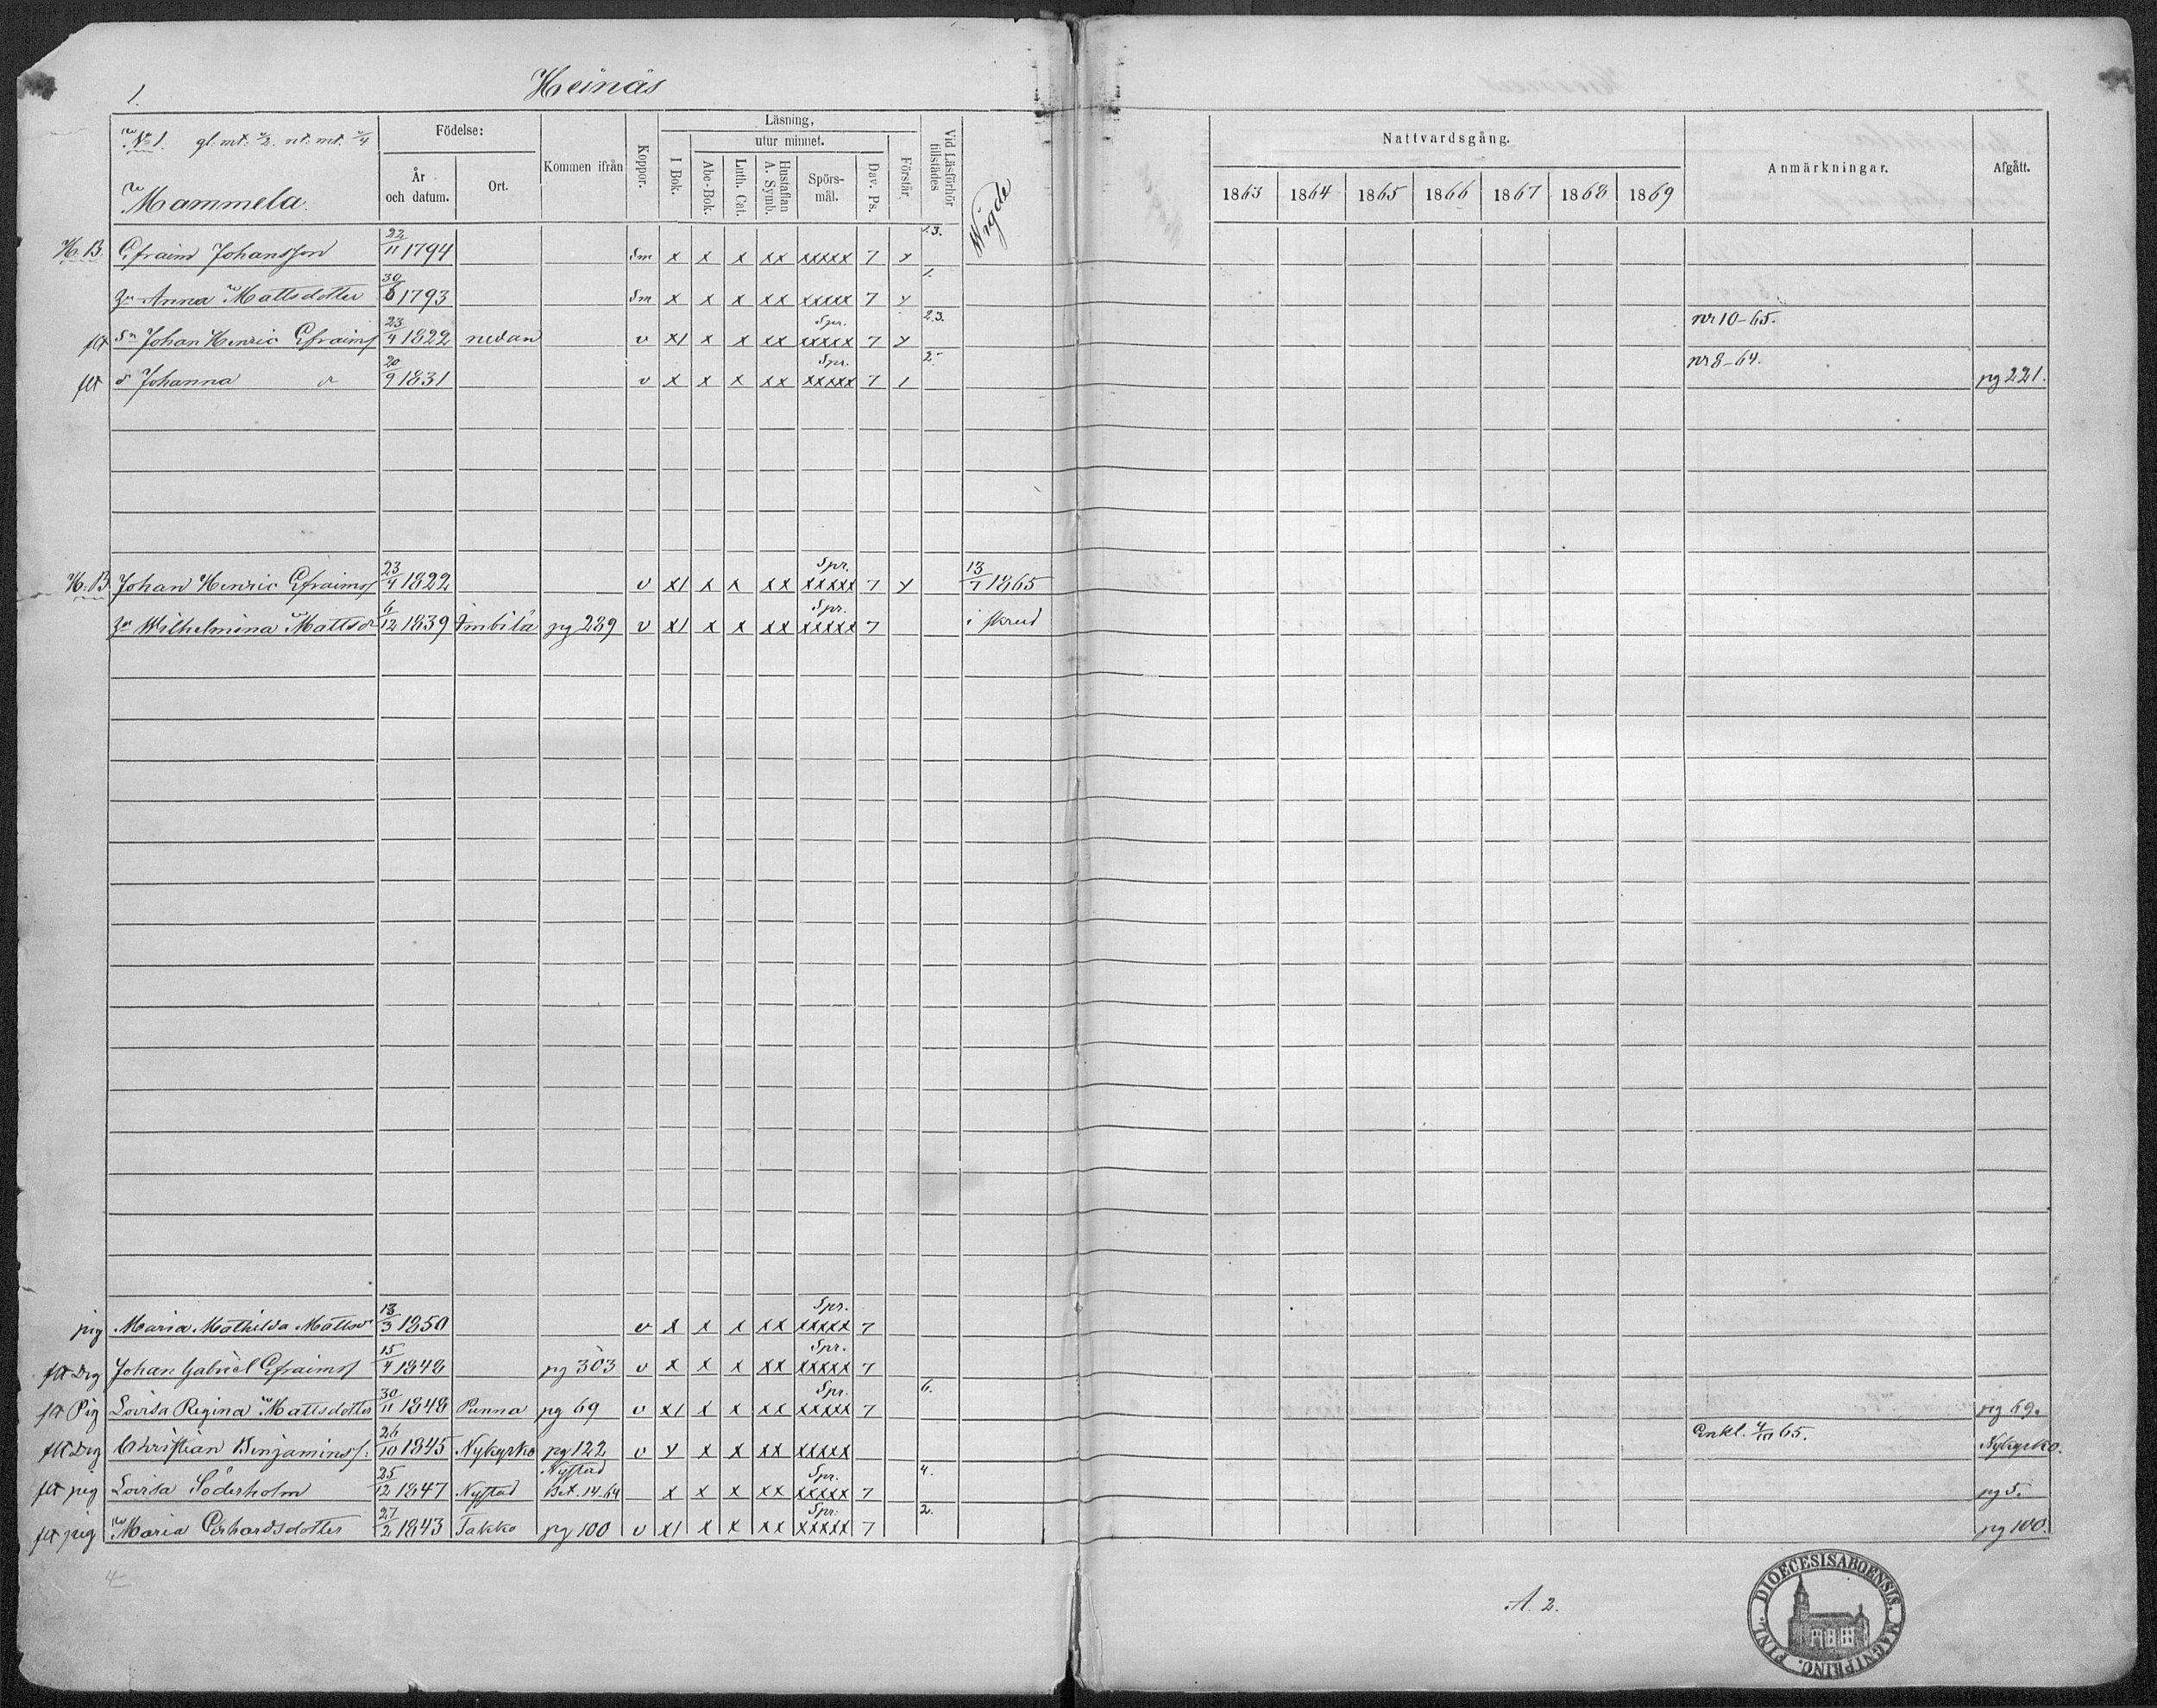 1. Heinäs
No 1. gl. mt. 1/2. nt. mt. 1/4
Mammela.
Födelse:
År och datum.
Ort.
Kommen ifrån
Koppor.
Läsning,
I Bok.
utur minnet.
Abc-Bok.
Luth. Cat.
Hustaflan A. Symb.
Spörs-mål.
Dav. Ps.
Förstår
Vid Läsförhör tillstädes
Wigde
Nattvardsgång.
1863 1864 1865 1866 1867 1868 1869
Anmärkningar.
Afgått.
H. B. Efraim Johansson 22/11 1794 Sm x x x xx xxxxx 7 x 1.3.
Anna Mattsdotter 1793 Sm x x x xx xxxxx 7 x 1.
flt Sn Johan Henric Efraimss 23/4 1822 nedan v x1 x x xx Spr. xxxxx 7 x 2.3. nr 10-65.
flt d Johanna d 20/9 1831 v x x x xx Spr. xxxxx 7 1 2. nr 8-64. pg 221.
H. B. Johan Henric Efraimss 23/4 1822 v x1 x x xx Spr. xxxxx 7 x 13/7 1865
Wilhelmina Mattsdr 6/12 1839 Imbila pg 289 v x1 x x xx Spr. xxxxx 7 i skrud
pig Maria Mathilda Mattsdr 13/3 1850 v x x x xx Spr. xxxxx 7
flt Drg Johan Gabriel Efraimss 15/4 1842 pg 303 v x x x xx Spr. xxxxx 7
flt Pig Lovisa Regina Mattsdotter 30/11 1848 Punna pg 69 v x1 x x xx Spr. xxxxx 7 6. pg 69.
flt Drg Christian Benjaminss: 26/10 1845 Nykyrko pg 122 v x x x xx xxxxx Enkl. 4/10 65. Nykyrko.
flt pig Lovisa Söderholm 25/12 1847 Nystad Nystad Bet. 14-64 x x x xx Spr. xxxxx 7 4. pg 5.
flt pig Maria Gerhardsdotter 27/2 1843 Takko pg 100 v x1 x x xx Spr: xxxxx 7 2. pg 100.
4
A. 2.
DIOECESIS ABOENSIS. MAGNI PRINC. FINL.